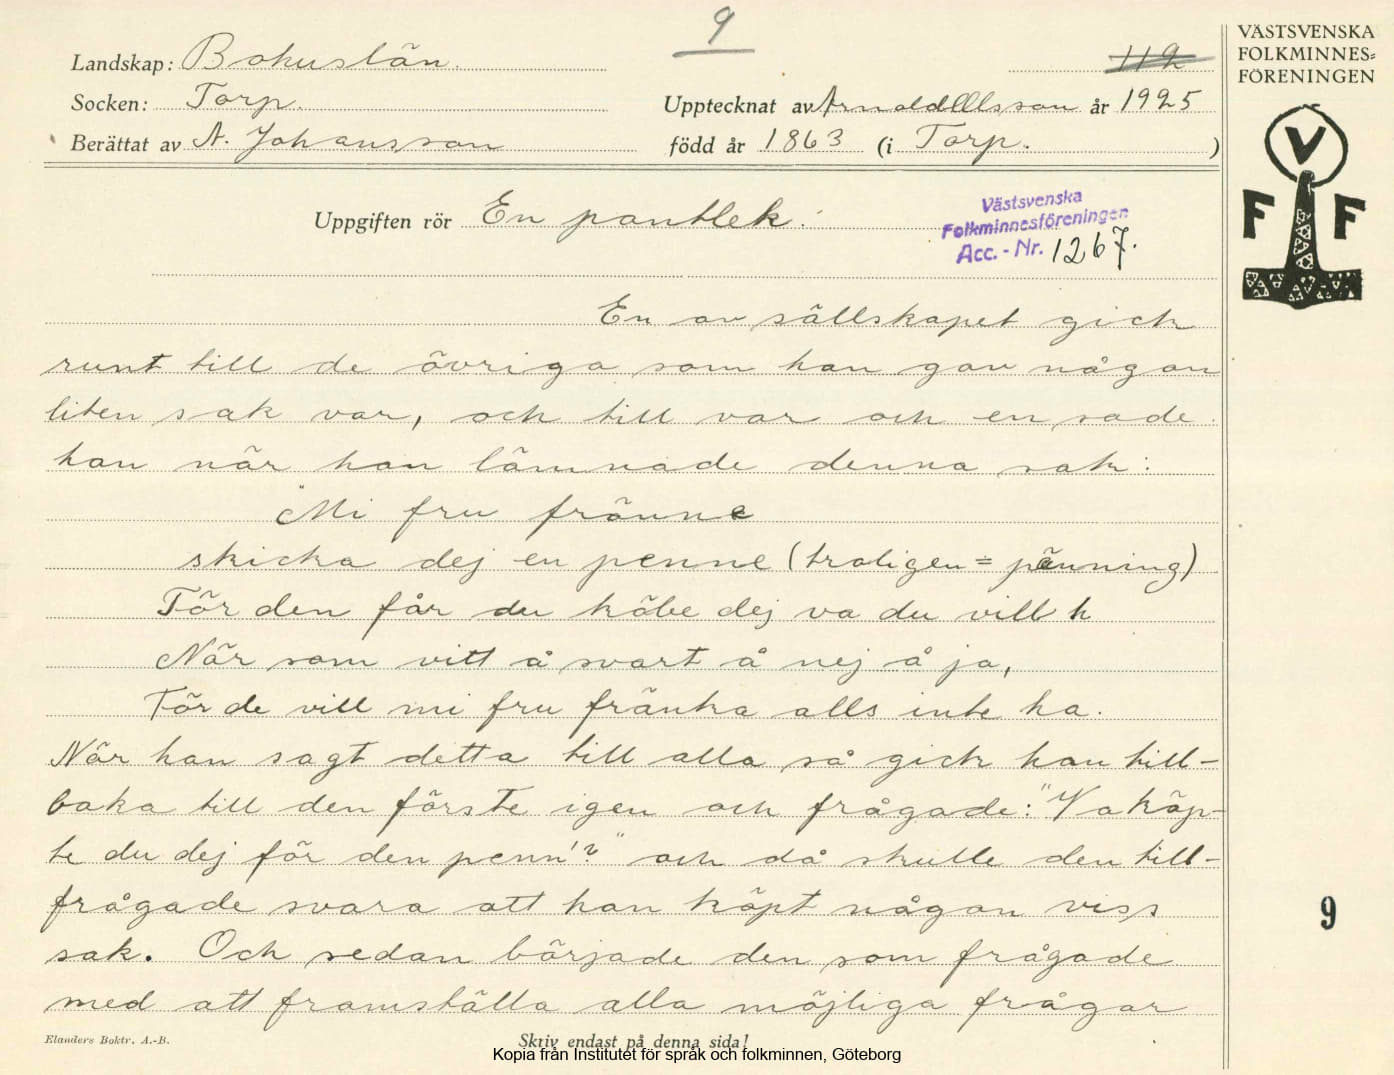 9
Landskap: Bohuslän.
112
Socken: Torp.
Upptecknat av Arnold Olsson år 1925
Berättat av A. Johansson
född år 1863 (i Torp. )
VÄSTSVENSKA
FOLKMINNES=
FÖRENINGEN
V
F F
Uppgiften rör En pantlek.
Västsvenska
Folkminnesföreningen
Acc. - Nr. 1267.
En av sällskapet gick
runt till de övriga som han gav någon
liten sak var, och till var och en sade
han när han lämnade denna sak:
"Mi fru fränne
skicka dej en penne (troligen = pänning)
För den får du köbe dej va du vill h
När som vitt å svart å nej å ja,
För de vill mi fru fränka alls inte ha.
När han sagt detta till alla så gick han till-
baka till den förste igen och frågade: "Va köp-
te du dej för den penn'?" och då skulle den till-
frågade svara att han köpt någon viss
sak. Och sedan började den som frågade
med att framställa alla möjliga frågar
9
Elanders Boktr. A.-B.
Skriv endast på denna sida!
Kopia från Institutet för språk och folkminnen, Göteborg